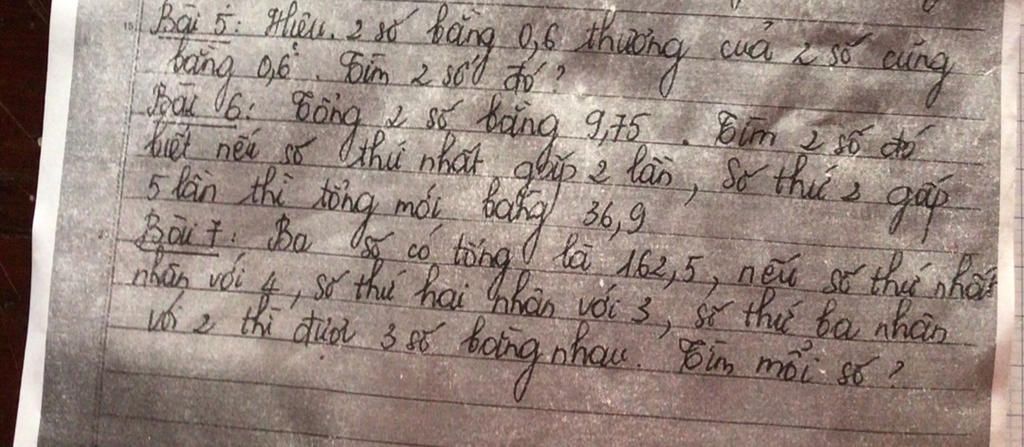 Bài 5: Hiệu 2 số bằng 0,6 thương của 2 số cũng
bằng 0,6. Tìm 2 số đó?
Bài 6: Tổng 2 số bằng 9,75. Tìm 2 số đó
biết nếu số thứ nhất gấp 2 lần, số thứ 2 gấp
5 lần thì tổng mới bằng 36,9
Bài 7: Ba số có tổng là 162,5, nếu số thứ nhất
nhân với 4, số thứ hai nhân với 3, số thứ ba nhân
với 2 thì được 3 số bằng nhau. Tìm mỗi số?